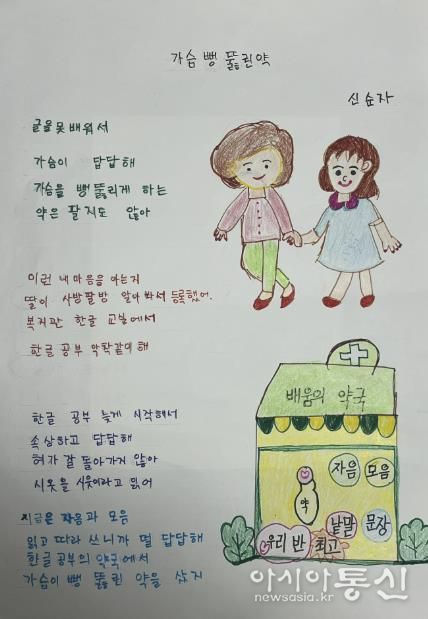 가슴 뻥 뚫린약
신순자
글을 못 배워서
가슴이 답답해
가슴을 뻥 뚫리게 하는
약은 팔지도 않아
이런 내마음을 아는지
딸이 사방팔방 알아봐서 등록했어.
복지관 한글 교실에서
한글 공부 악착같이 해
한글 공부 늦게 시작해서
속상하고 답답해
혀가 잘 돌아가지 않아
시옷을 시옷이라고 읽어
지금은 자음과 모음
읽고 따라 쓰니까 덜 답답해
한글 공부의 약국에서
가슴이 뻥 뚫린 약을 샀지
배움의 약국
자음 모음
약
낱말 문장
우리 반 최고
아시아통신
newsasia.kr